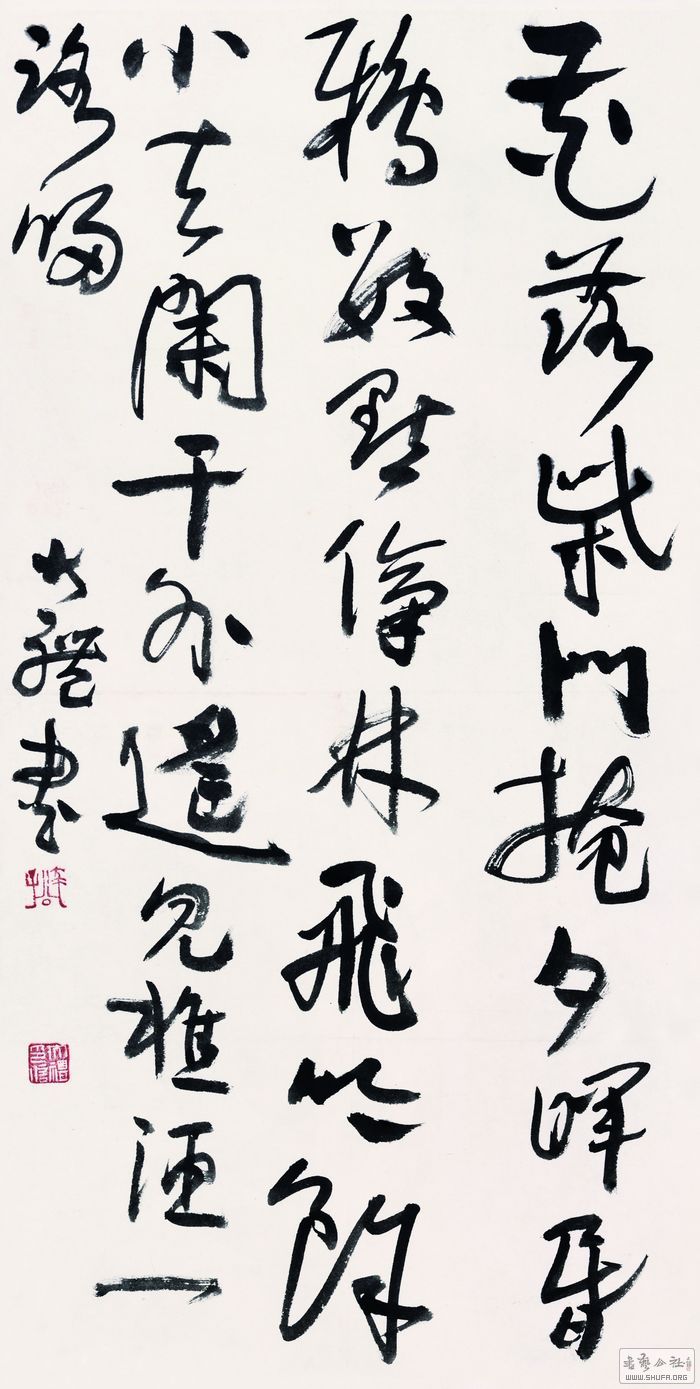 花落柴門掩夕暉昏
鴉數點傍林飛吟餘
小立闌干外遙見樵漁一
路歸
大禮書
書藝公社
WWW.SHUFA.ORG